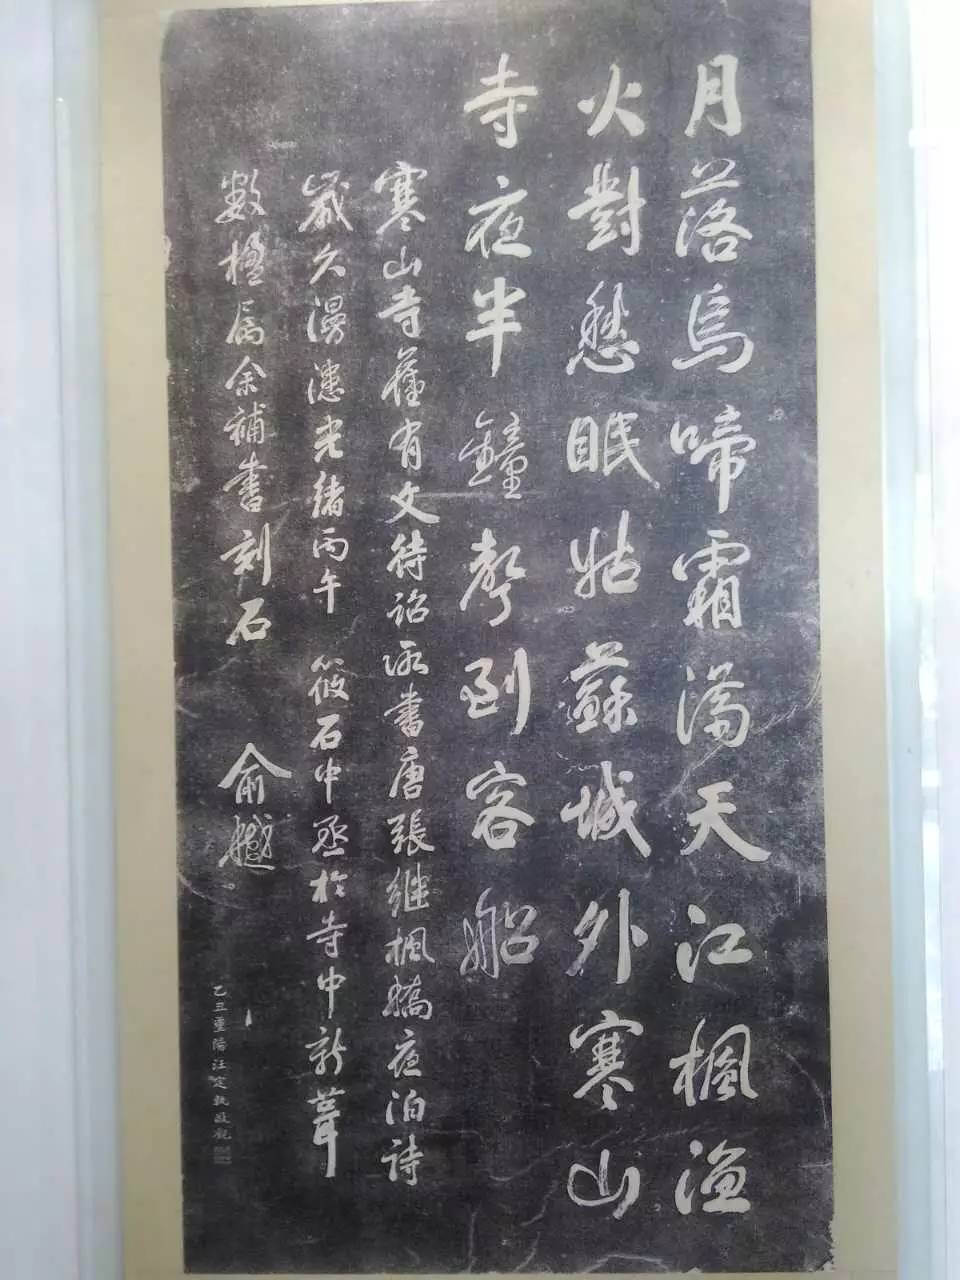 月落烏啼霜滿天江楓漁
火對愁眠姑蘇城外寒山
寺夜半鐘聲到客船
寒山寺舊有文待詔所書唐張継楓橋夜泊詩
歲久漫漶光緒丙午 筱石中丞於寺中新葺
數楹屬余補書刻石 俞樾
乙丑重陽汪定執敬觀